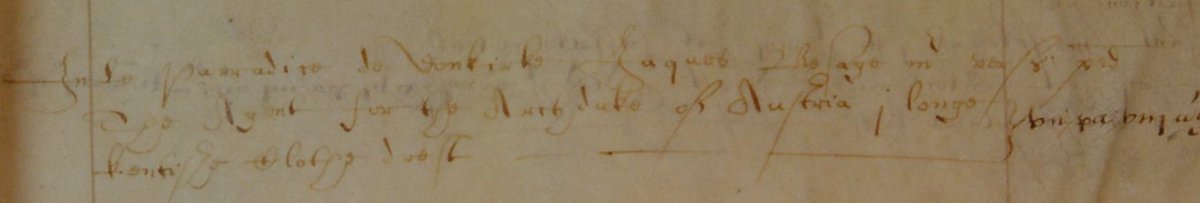 In le Parradice de Donkirke Jaques Besaye mr vers pred
The Agent for the Archduke of Austria j longe
kentishe Clothe drest